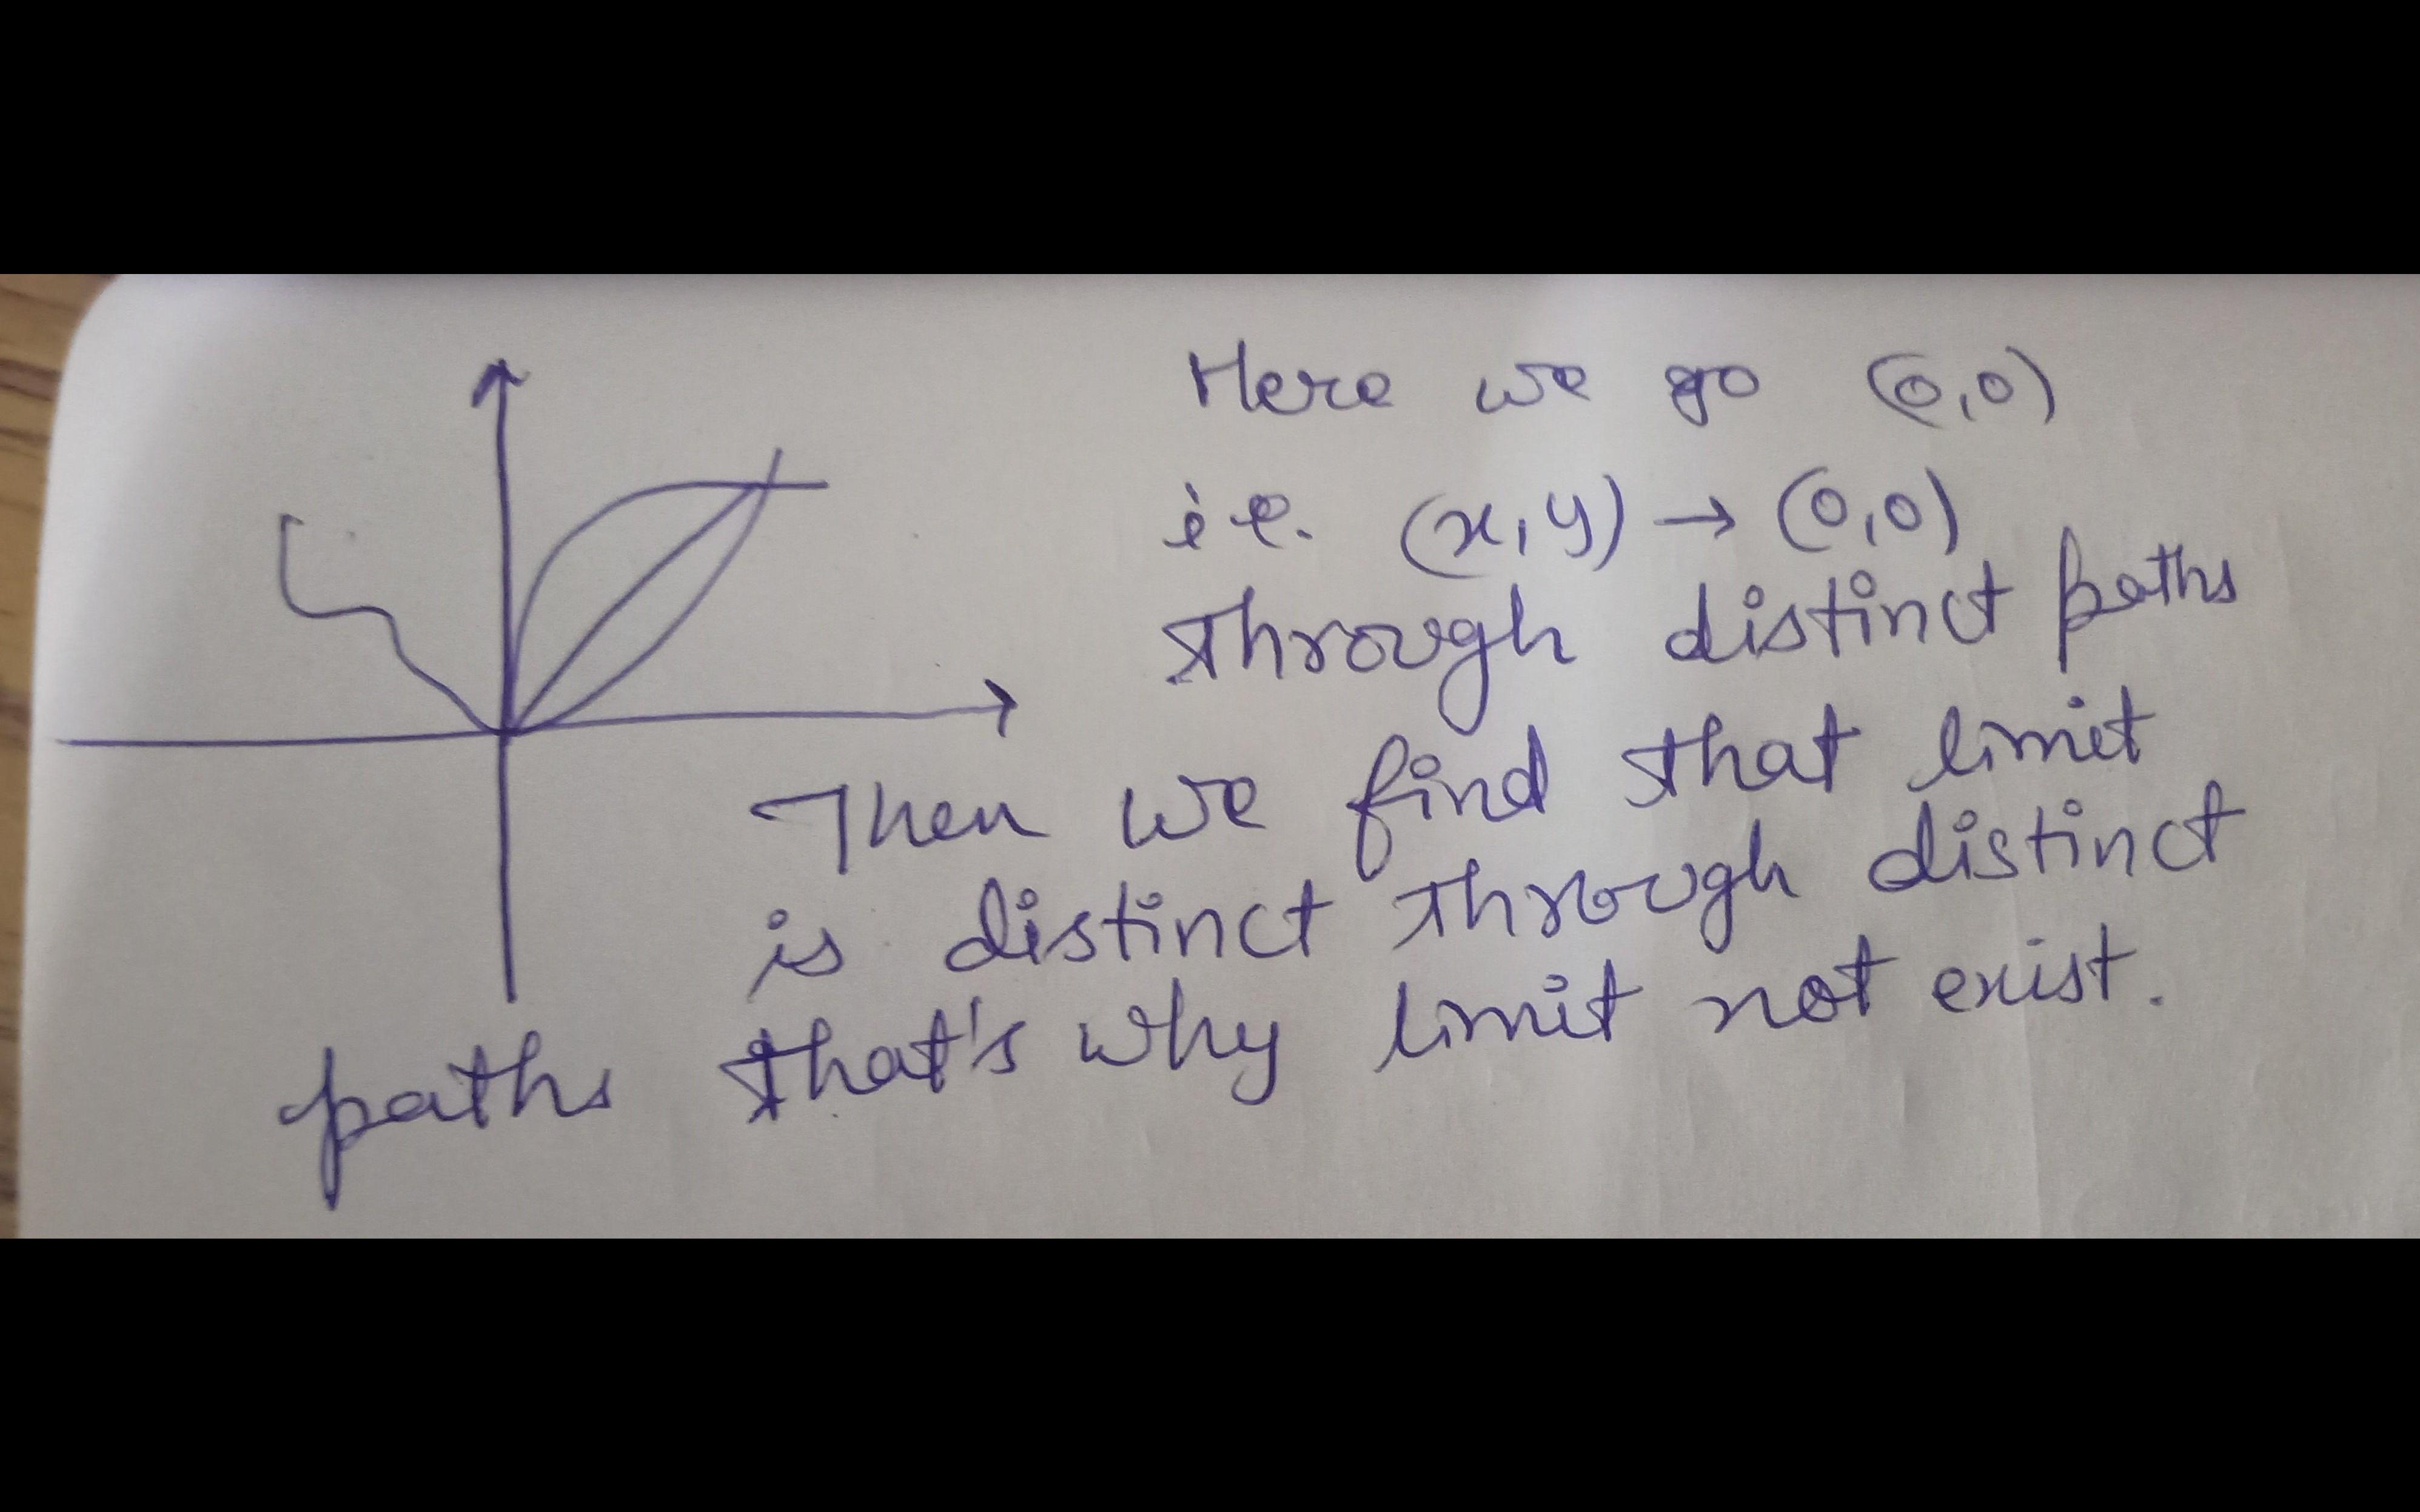 Here we go (0,0)
i.e. (x,y) → (0,0)
through distinct paths
Then we find that limit
is distinct through distinct
paths that's why limit not exist.